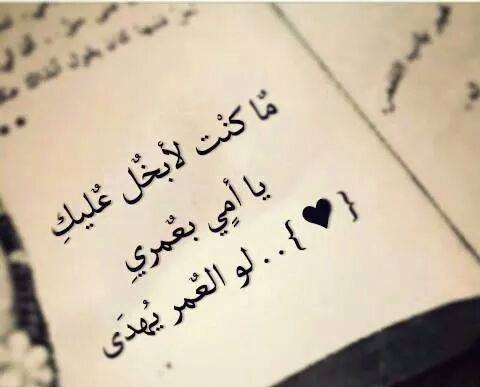 مٌا كنْت لأبخٌل عٌليكِ
يا أمٍي بعٌمريِ
{♥}..لو العٌمر يُهدَى